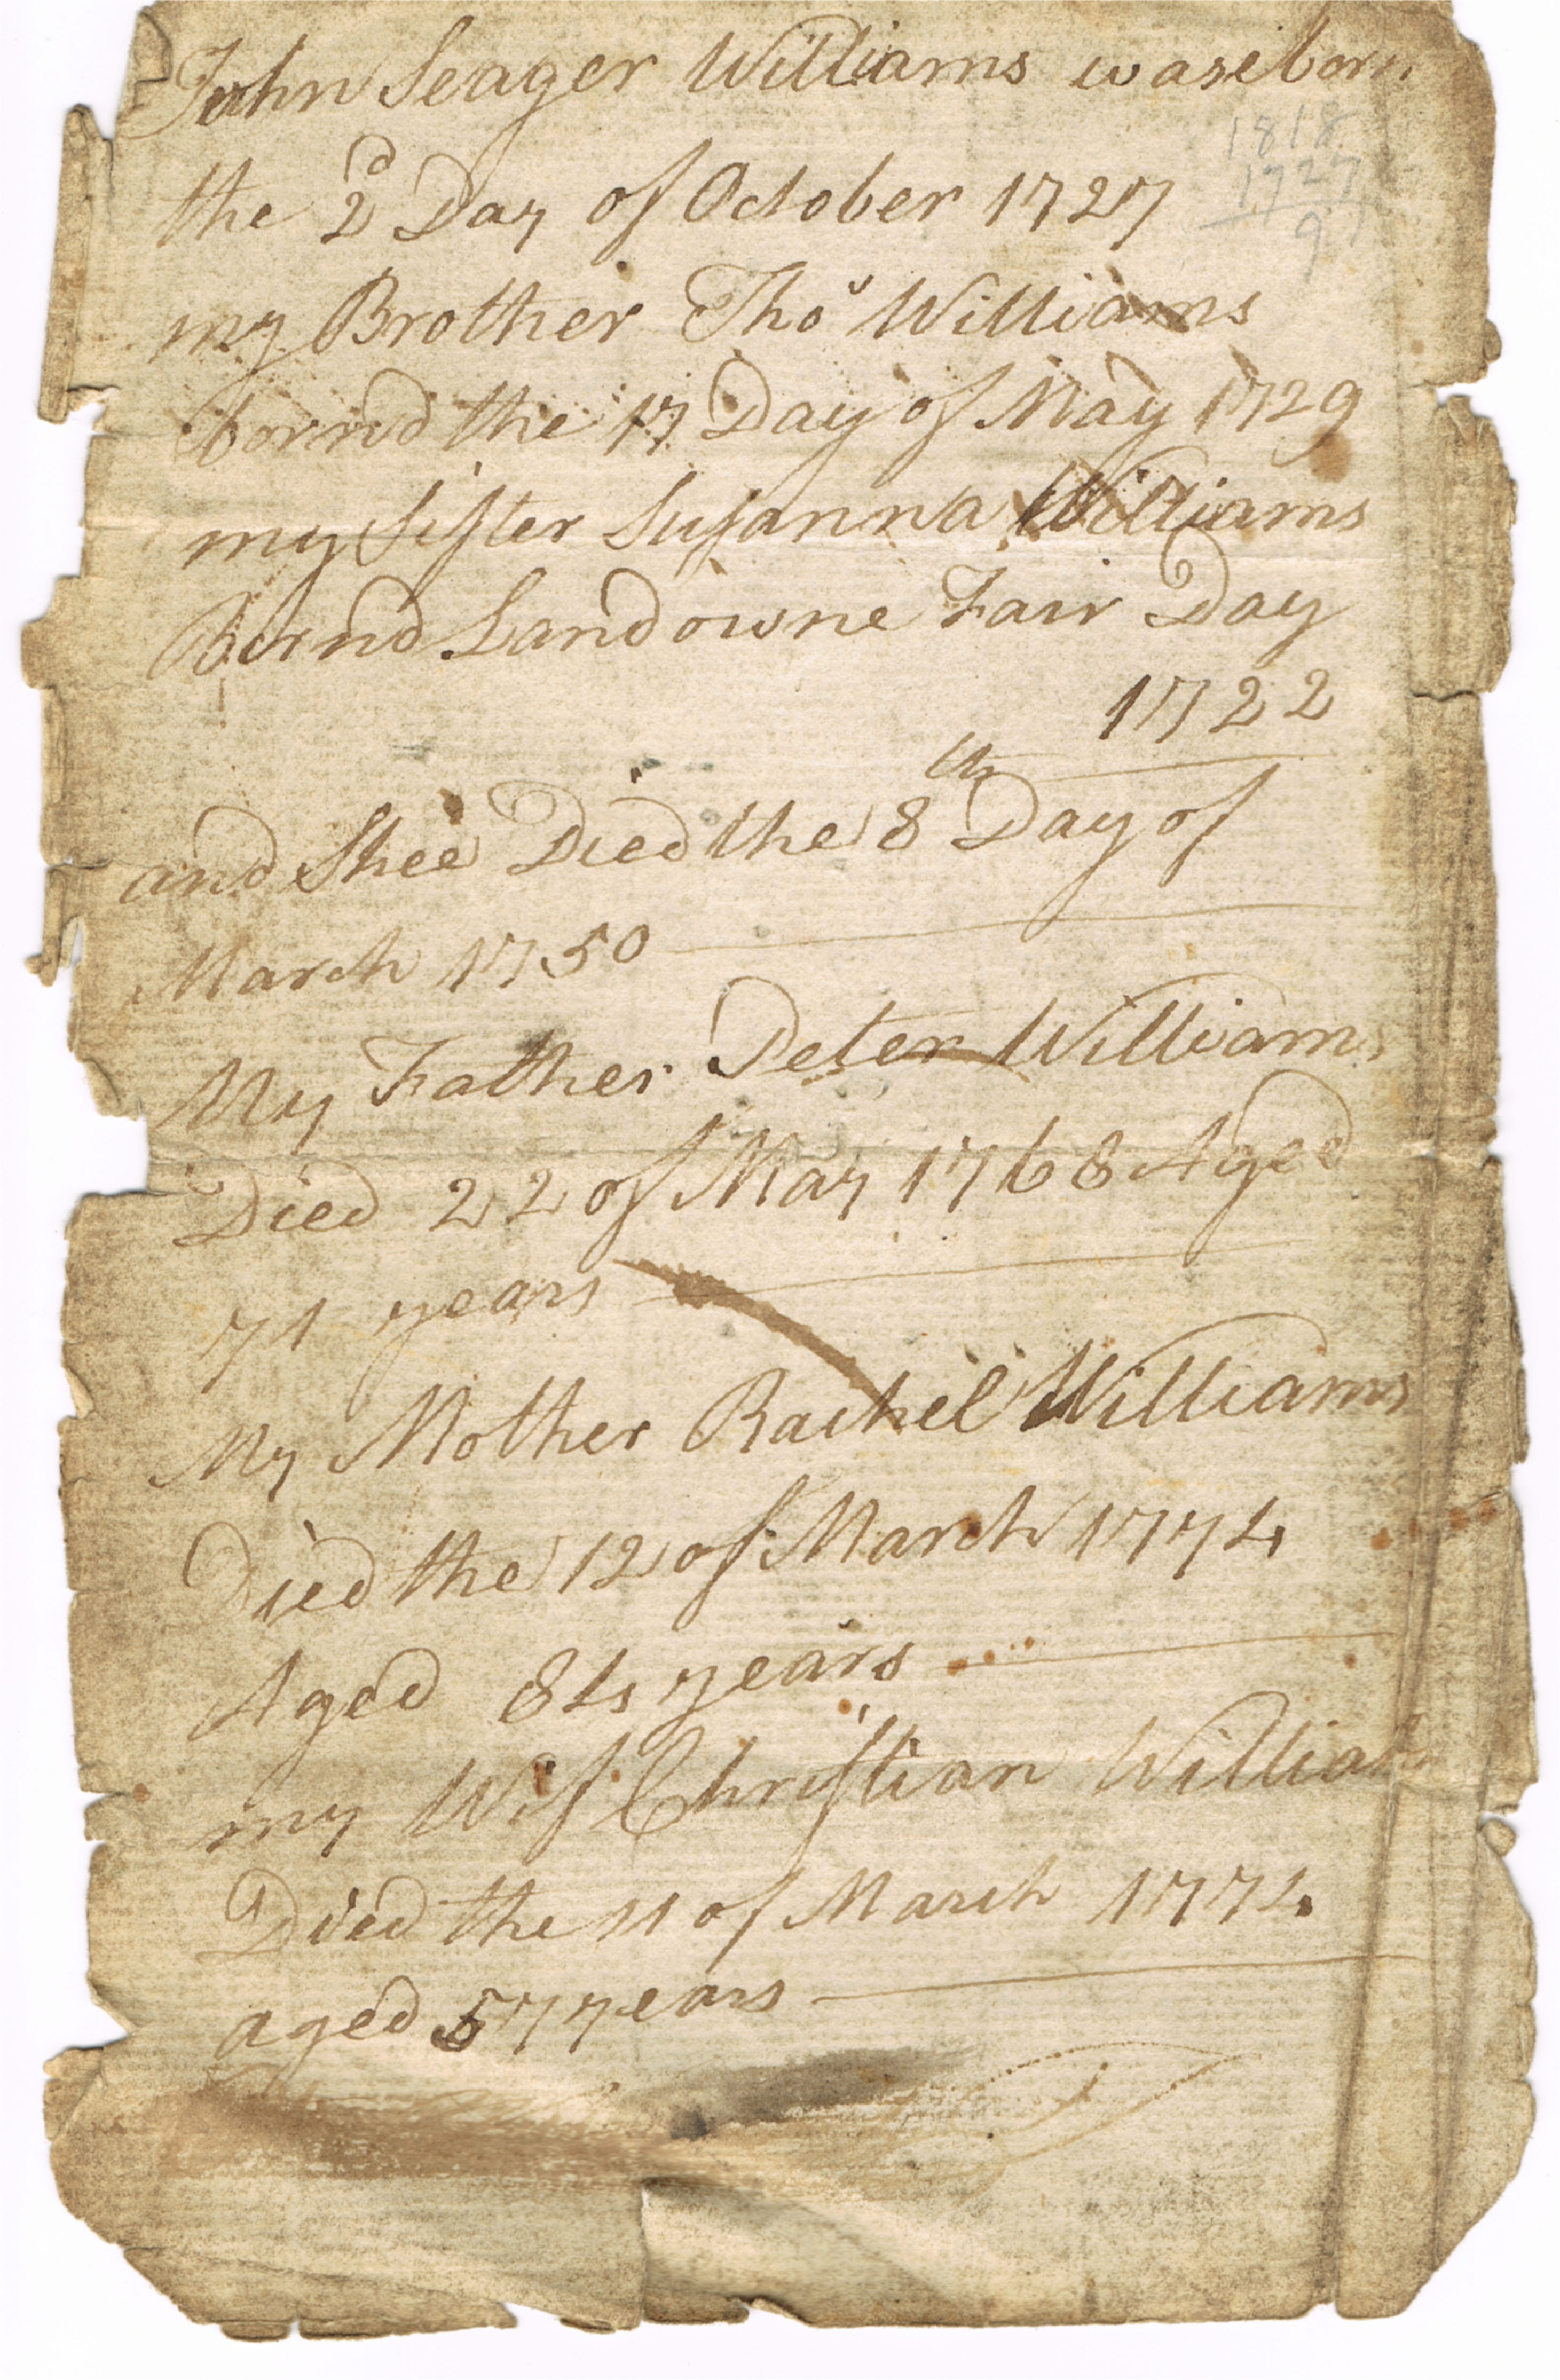 John Seager Williams wase born
the 2d Day of October 1727
1818
1727
91
my Brother Thos Williams
bornd the 17 Day of May 1729
my Sister Susanna Williams
Bornd Landowne Fair Day
1722
and Shee Died the 8th Day of
March 1750
My Father Peter Williams
Died 22 of May 1768 Aged
71 years
My Mother Rachel Williams
Died the 12 of March 1774
Aged 84 years
my Wif Christian William
Died the 11 of March 1774
aged 57 years